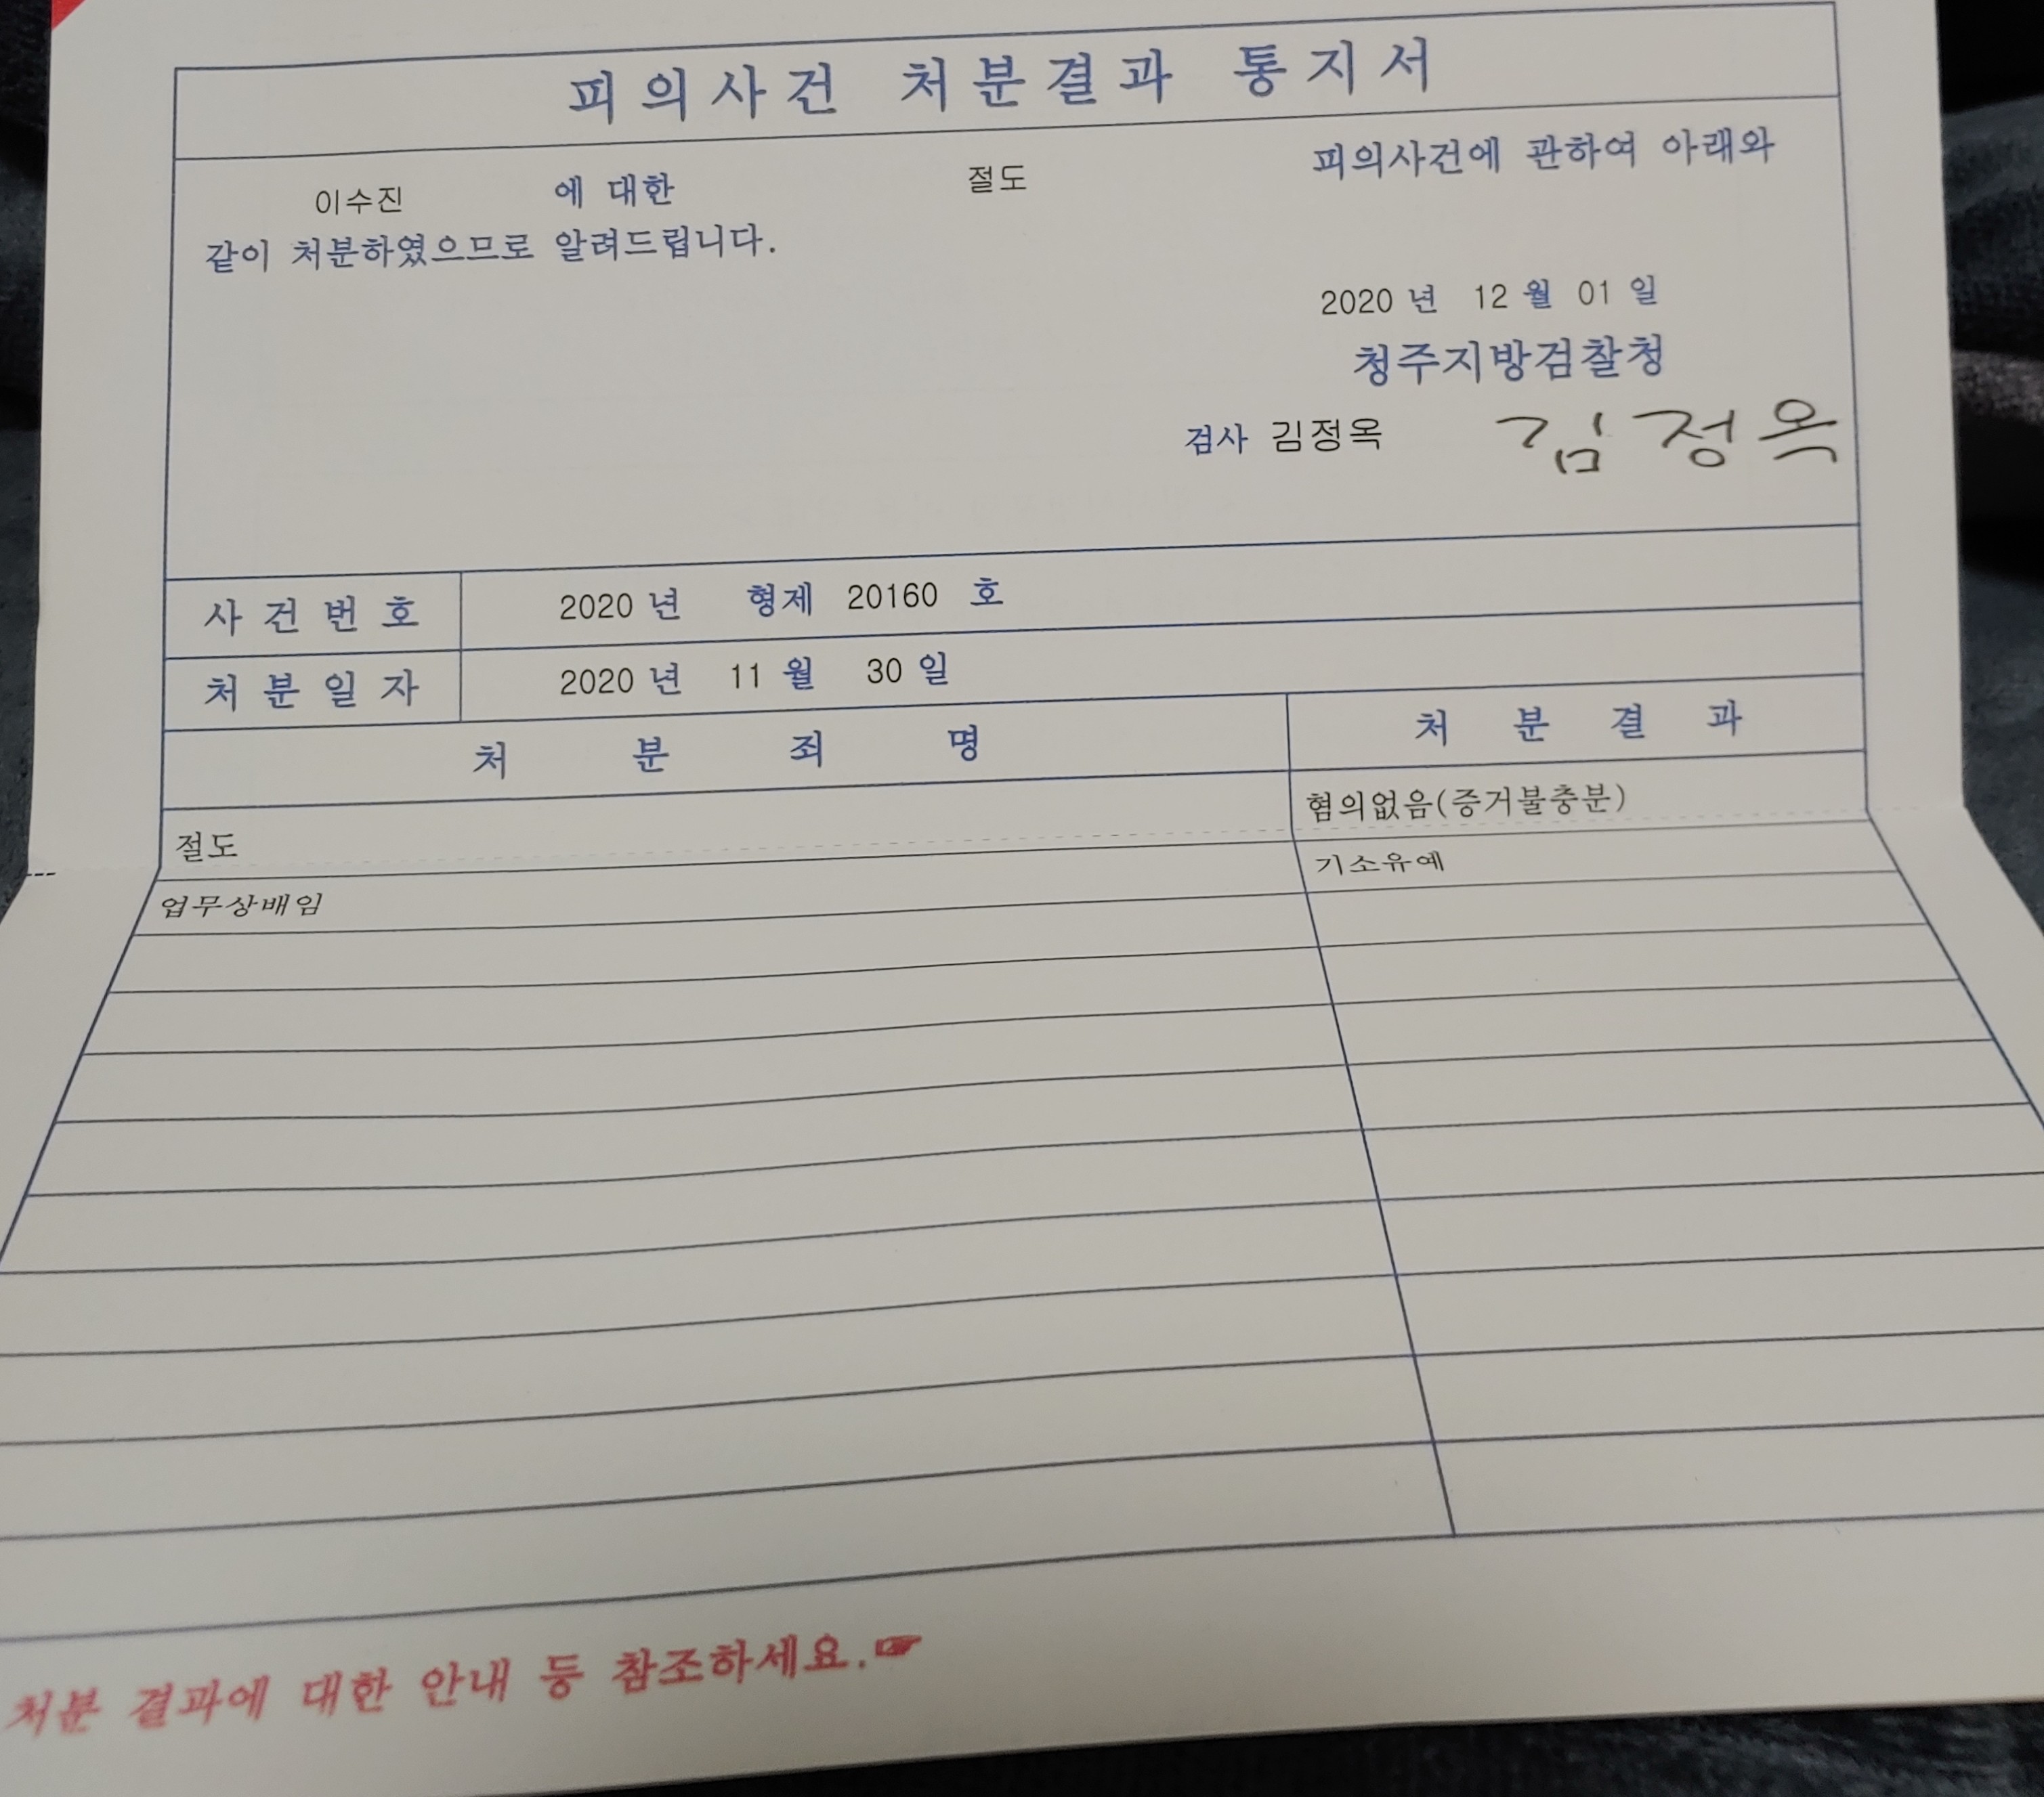 피의사건 처분결과 통지서
이수진 에 대한 절도 피의사건에 관하여 아래와
같이 처분하였으므로 알려드립니다.
2020 년 12 월 01 일
청주지방검찰청
검사 김정옥 김정옥
사건번호 2020 년 형제 20160 호
처분일자 2020 년 11 월 30 일
처분죄명 처분결과
절도 혐의없음(증거불충분)
업무상배임 기소유예
처분 결과에 대한 안내 등 참조하세요.☞